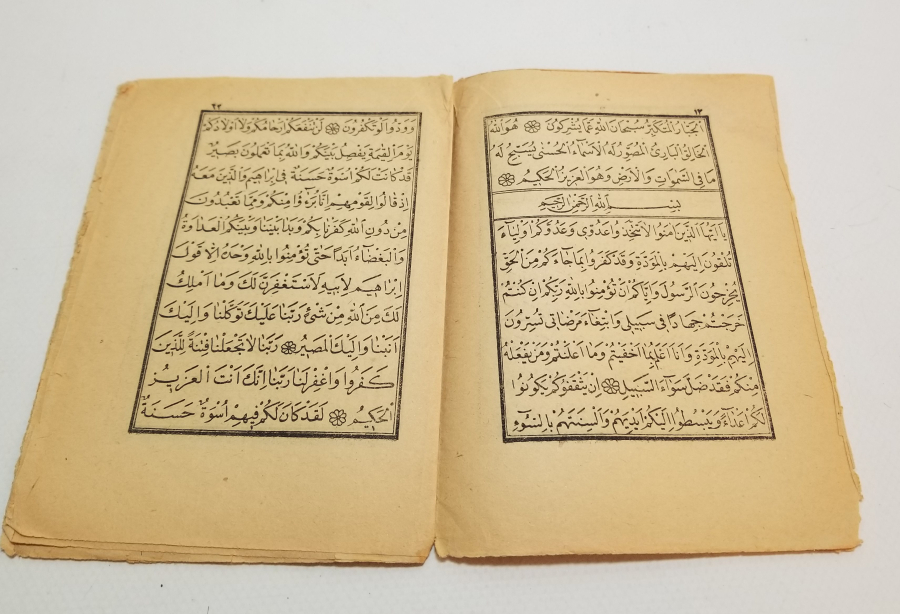 ١٣
الْجَبَّارُ الْمُتَكَبِّرُ سُبْحَانَ اللّٰهِ عَمَّا يُشْرِكُونَ ۞ هُوَ اللّٰهُ
الْخَالِقُ الْبَارِئُ الْمُصَوِّرُ لَهُ الْاَسْمَاءُ الْحُسْنٰى يُسَبِّحُ لَهُ
مَا فِى السَّمٰوَاتِ وَالْاَرْضِ وَهُوَ الْعَزِيزُ الْحَكِيمُ ۞
بِسْمِ اللّٰهِ الرَّحْمٰنِ الرَّحِيمِ
يَا اَيُّهَا الَّذِينَ اٰمَنُوا لَا تَتَّخِذُوا عَدُوِّى وَعَدُوَّكُمْ اَوْلِيَاءَ
تُلْقُونَ اِلَيْهِمْ بِالْمَوَدَّةِ وَقَدْ كَفَرُوا بِمَا جَاءَكُمْ مِنَ الْحَقِّ
يُخْرِجُونَ الرَّسُولَ وَاِيَّاكُمْ اَنْ تُؤْمِنُوا بِاللّٰهِ رَبِّكُمْ اِنْ كُنْتُمْ
خَرَجْتُمْ جِهَادًا فِى سَبِيلِى وَابْتِغَاءَ مَرْضَاتِى تُسِرُّونَ
اِلَيْهِمْ بِالْمَوَدَّةِ وَاَنَا اَعْلَمُ بِمَا اَخْفَيْتُمْ وَمَا اَعْلَنْتُمْ وَمَنْ يَفْعَلْهُ
مِنْكُمْ فَقَدْ ضَلَّ سَوَاءَ السَّبِيلِ ۞ اِنْ يَثْقَفُوكُمْ يَكُونُوا
لَكُمْ اَعْدَاءً وَيَبْسُطُوا اِلَيْكُمْ اَيْدِيَهُمْ وَاَلْسِنَتَهُمْ بِالسُّوءِ
٢٢
وَوَدُّوا لَوْ تَكْفُرُونَ ۞ لَنْ تَنْفَعَكُمْ اَرْحَامُكُمْ وَلَا اَوْلَادُكُمْ
يَوْمَ الْقِيٰمَةِ يَفْصِلُ بَيْنَكُمْ وَاللّٰهُ بِمَا تَعْمَلُونَ بَصِيرٌ
قَدْ كَانَتْ لَكُمْ اُسْوَةٌ حَسَنَةٌ فِى اِبْرٰهِيمَ وَالَّذِينَ مَعَهُ
اِذْ قَالُوا لِقَوْمِهِمْ اِنَّا بُرَءٰٓؤُا مِنْكُمْ وَمِمَّا تَعْبُدُونَ
مِنْ دُونِ اللّٰهِ كَفَرْنَا بِكُمْ وَبَدَا بَيْنَنَا وَبَيْنَكُمُ الْعَدَاوَةُ
وَالْبَغْضَاءُ اَبَدًا حَتّٰى تُؤْمِنُوا بِاللّٰهِ وَحْدَهُ اِلَّا قَوْلَ
اِبْرٰهِيمَ لِاَبِيهِ لَاَسْتَغْفِرَنَّ لَكَ وَمَا اَمْلِكُ
لَكَ مِنَ اللّٰهِ مِنْ شَىْءٍ رَبَّنَا عَلَيْكَ تَوَكَّلْنَا وَاِلَيْكَ
اَنَبْنَا وَاِلَيْكَ الْمَصِيرُ ۞ رَبَّنَا لَا تَجْعَلْنَا فِتْنَةً لِلَّذِينَ
كَفَرُوا وَاغْفِرْ لَنَا رَبَّنَا اِنَّكَ اَنْتَ الْعَزِيزُ
الْحَكِيمُ ۞ لَقَدْ كَانَ لَكُمْ فِيهِمْ اُسْوَةٌ حَسَنَةٌ